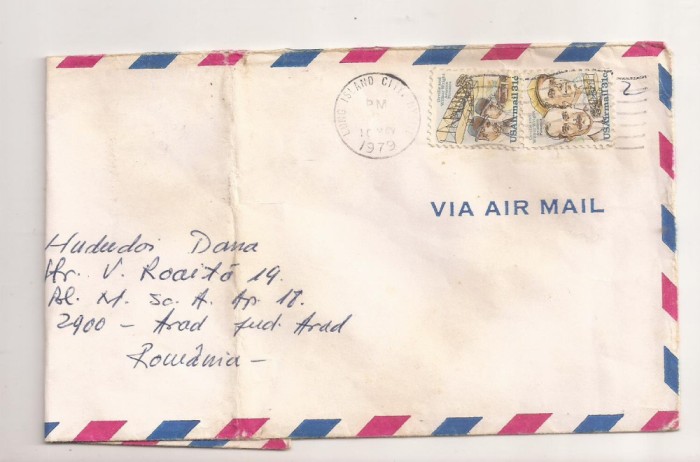 LONG ISLAND CITY, NY
PM
1979
USAirmail 31c
USAirmail 31c
VIA AIR MAIL
Hududoi Dana
Str. V. Roaită 19.
Bl. M. Sc. A. Ap. 18.
2900 – Arad jud. Arad
România –